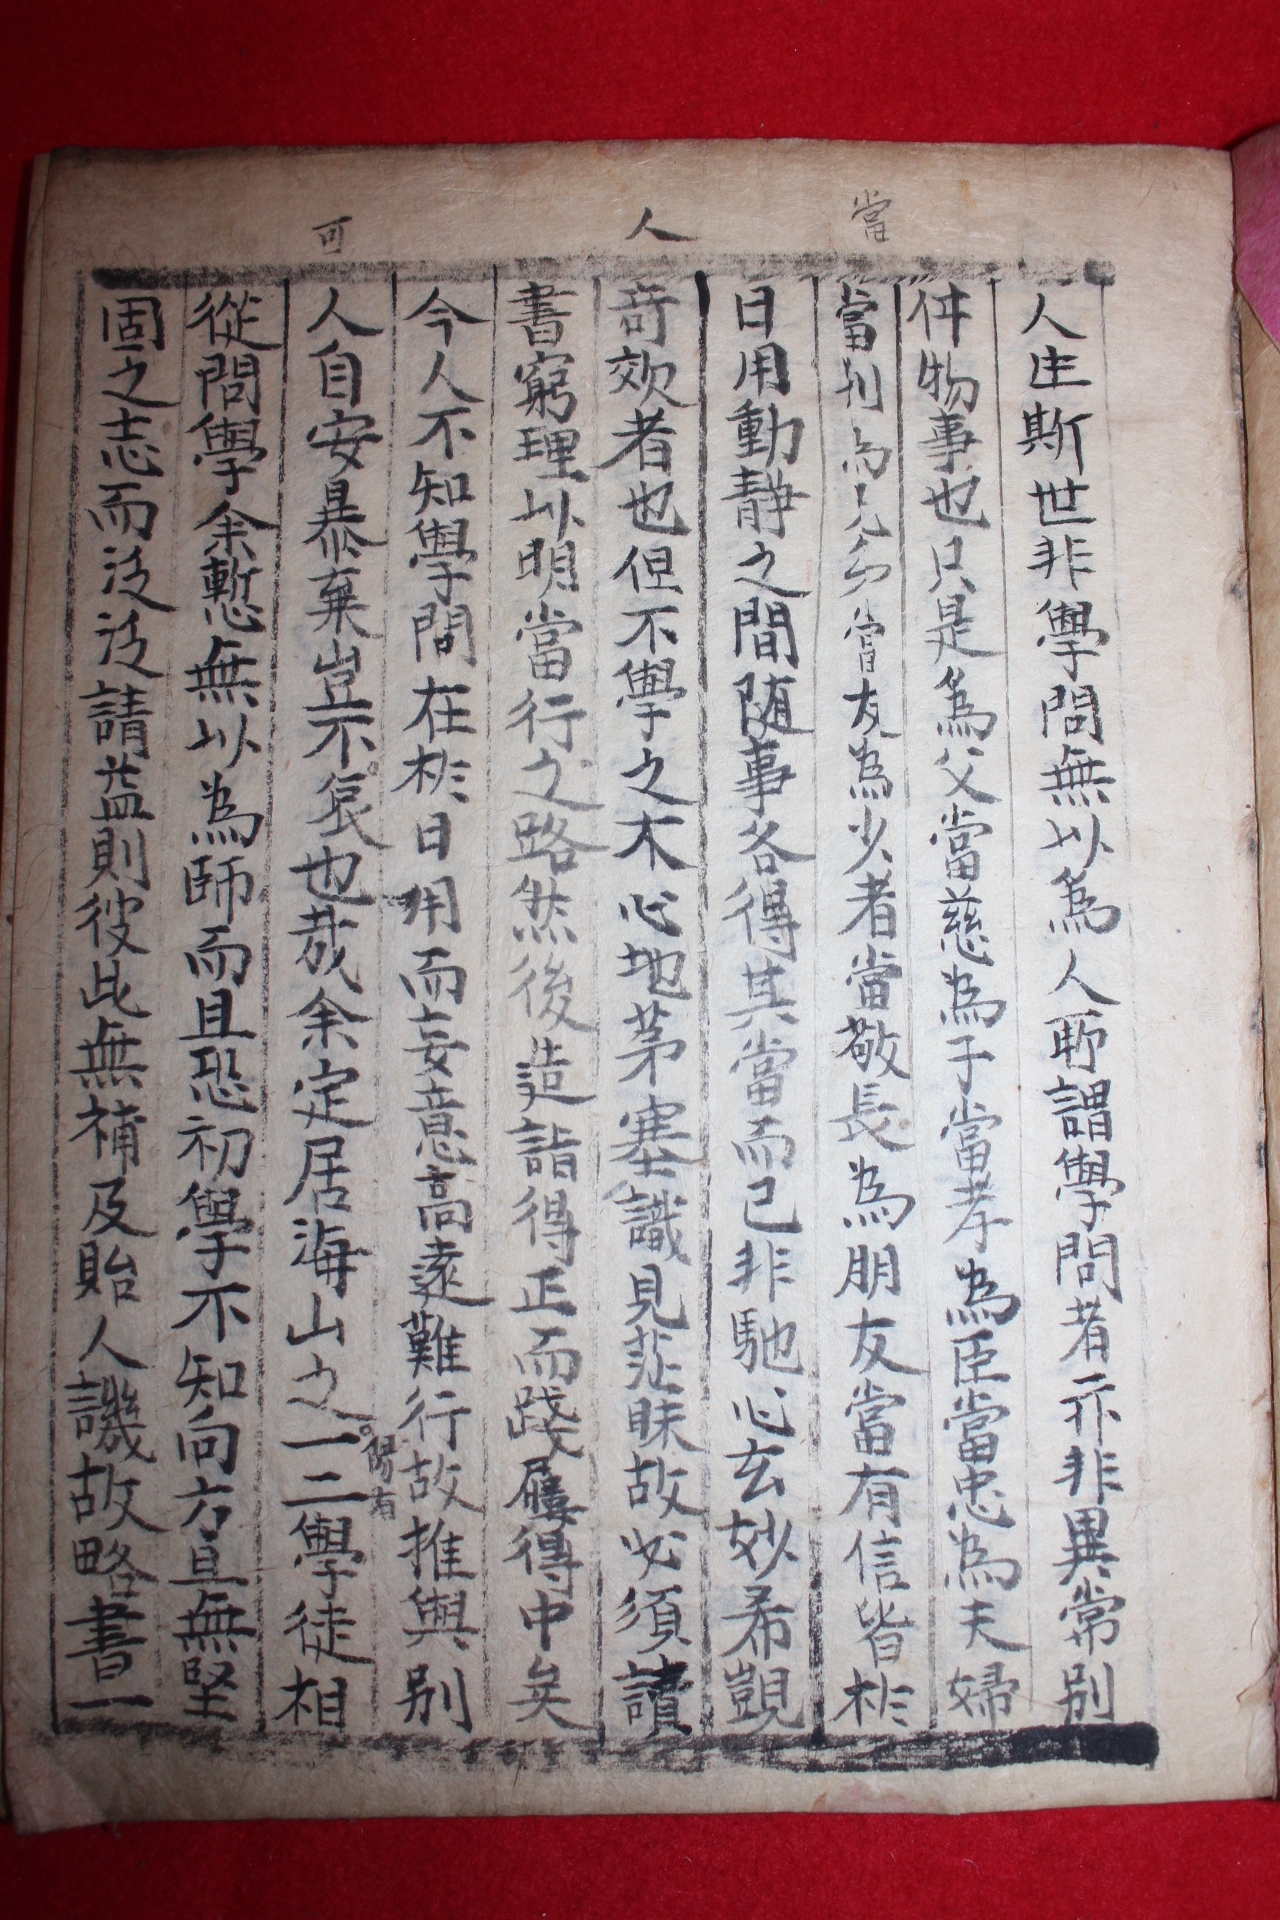 當
人
可
人生斯世非學問無以為人所謂學問者亦非異常別
件物事也只是為父當慈為子當孝為臣當忠為夫婦
當別為兄弟當友為少者當敬長為朋友當有信皆於
日用動靜之間随事各得其當而已非馳心玄妙希覬
奇效者也但不學之木心地茅塞識見茫昧故必須讀
書窮理以明當行之路然後造詣得正而踐履得中矣
今人不知學問在於日用而妄意高遠難行故推與別
人自安暴棄豈不哀也哉余定居海山之陽有一二學徒相
從問學余慙無以為師而且恐初學不知向方且無堅
固之志而泛泛請益則彼此無補及貽人譏故略書一